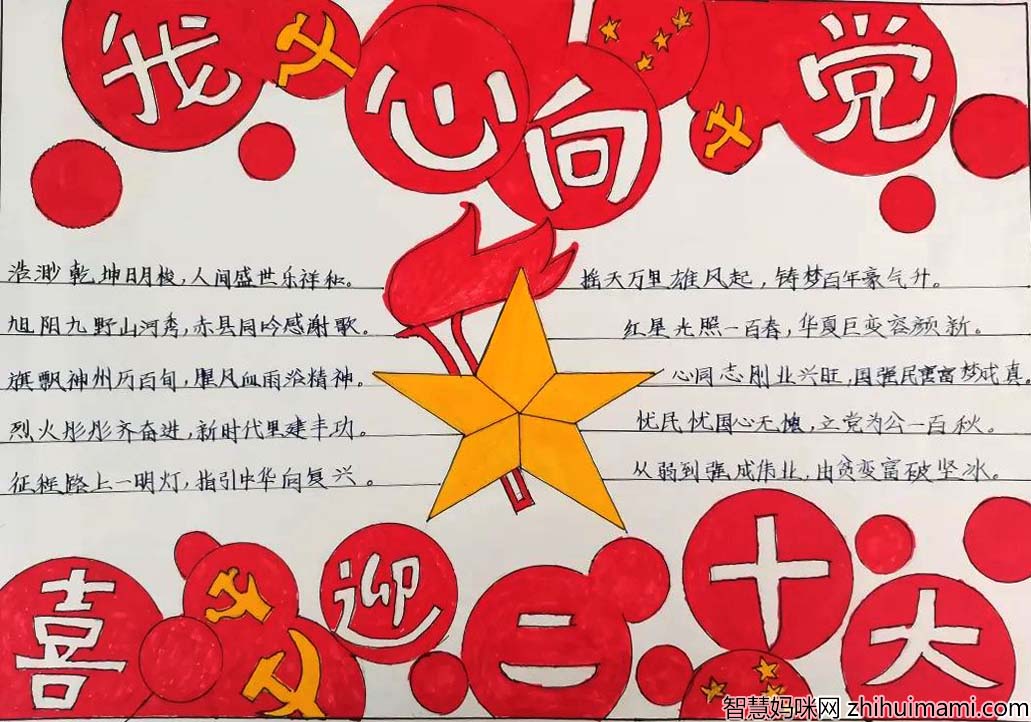 我心向党
浩渺乾坤日月梭，人间盛世乐祥和。
旭阳九野山河秀，赤县同吟感谢歌。
旗飘神州历百旬，腥风血雨浴精神。
烈火彤彤齐奋进，新时代里建丰功。
征程路上一明灯，指引中华向复兴。
摇天万里雄风起，铸梦百年豪气升。
红星光照一百春，华夏巨变容颜新。
心同志刚业兴旺，国强民富梦成真。
忧民忧国心无愧，立党为公一百秋。
从弱到强成伟业，由贫变富破坚冰。
喜迎二十大
智慧妈咪网 zhihuimami.com